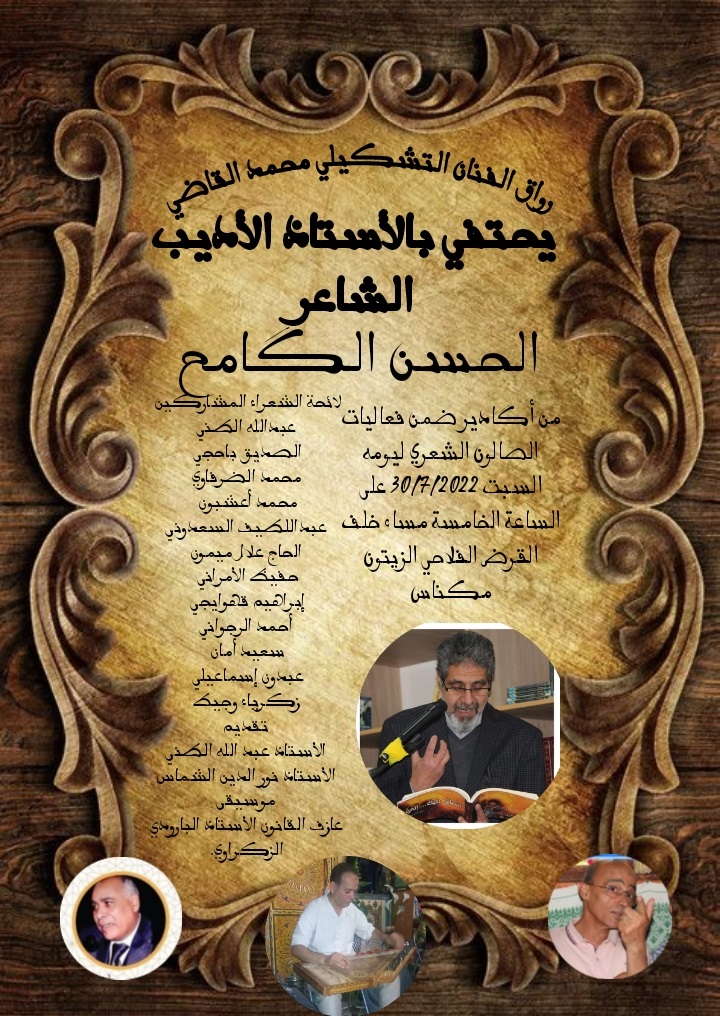 رواق الفنان التشكيلي محمد القاضي
يحتفي بالأستاذ الأديب
الشاعر
الحسن الكامح
من أكادير ضمن فعاليات
الصالون الشعري ليومه
السبت 30/7/2022 على
الساعة الخامسة مساء خلف
القرض الفلاحي الزيتون
مكناس
لائحة الشعراء المشاركين
عبدالله الطني
الصديق باحجي
محمد الضرفاوي
محمد أعشبون
عبداللطيف السعدوني
الحاج علال ميمون
حفيظ الأمراني
إبراهيم قهوايجي
أحمد الرجواني
سعيد أمان
عبدون إسماعيلي
زكرياء وجيك
تقديم
الأستاذ عبد الله الطني
الأستاذ نور الدين الشماس
موسيقى
عازف القانون الأستاذ البارودي
الزكراوي.